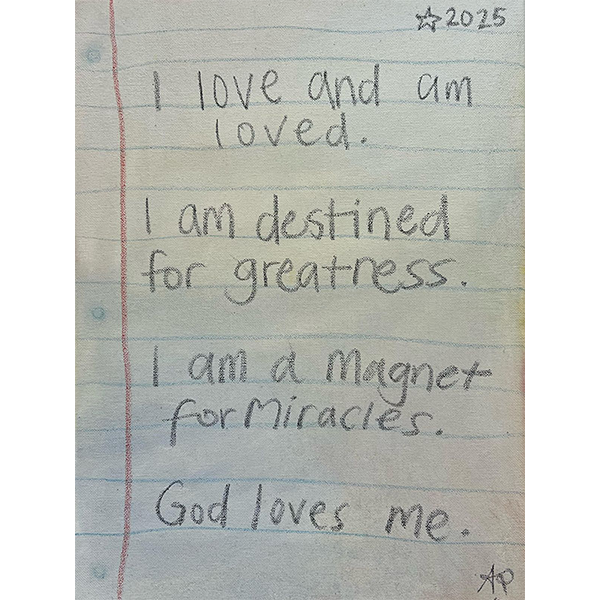 ☆2025
I love and am
loved.
I am destined
for greatness.
I am a magnet
for Miracles.
God loves me.
AP